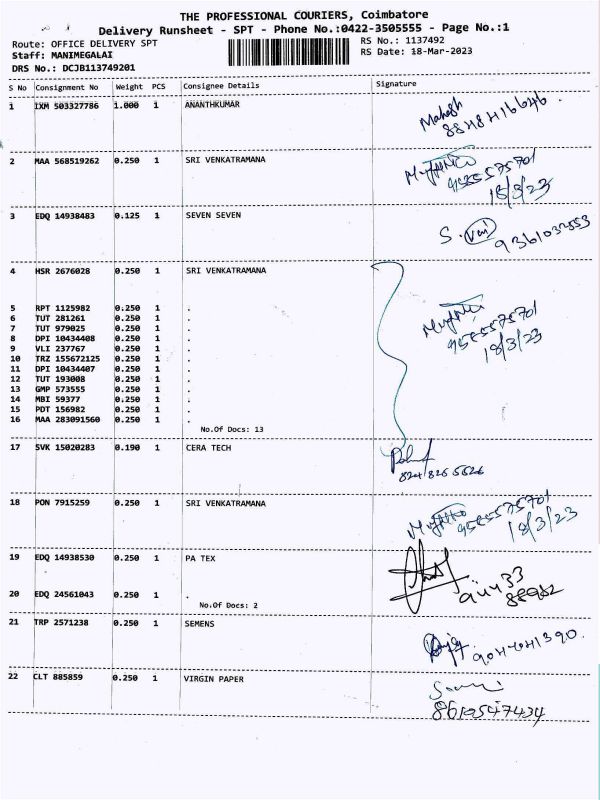 THE PROFESSIONAL COURIERS, Coimbatore
Delivery Runsheet - SPT - Phone No.:0422-3505555 - Page No.:1
Route: OFFICE DELIVERY SPT
RS No.: 1137492
Staff: MANIMEGALAI
RS Date: 18-Mar-2023
DRS No.: DCJB113749201
S No Consignment No Weight PCS Consignee Details Signature
1 IXM 503327786 1.000 1 ANANTHKUMAR
Mahesh
2 MAA 568519262 0.250 1 SRI VENKATRAMANA
9585575701
18/3/23
3 EDQ 14938483 0.125 1 SEVEN SEVEN
4 HSR 2676028 0.250 1 SRI VENKATRAMANA
5 RPT 1125982 0.250 1 .
6 TUT 281261 0.250 1 .
7 TUT 979025 0.250 1 .
8 DPI 10434408 0.250 1 .
9 VLI 237767 0.250 1 .
10 TRZ 155672125 0.250 1 .
11 DPI 10434407 0.250 1 .
12 TUT 193008 0.250 1 .
13 GMP 573555 0.250 1 .
14 MBI 59377 0.250 1 .
15 PDT 156982 0.250 1 .
16 MAA 283091560 0.250 1 .
9585575701
18/3/23
No.Of Docs: 13
17 SVK 15020283 0.190 1 CERA TECH
18 PON 7915259 0.250 1 SRI VENKATRAMANA
9585575701
18/3/23
19 EDQ 14938530 0.250 1 PA TEX
20 EDQ 24561043 0.250 1 .
No.Of Docs: 2
21 TRP 2571238 0.250 1 SEMENS
22 CLT 885859 0.250 1 VIRGIN PAPER
8610547434